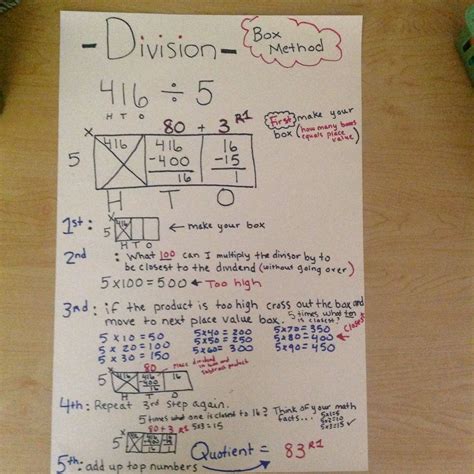 - Division -
Box
Method
416 ÷ 5
H T O
First, make your
box (how many boxes
equals place
value)
80 + 3 R1
X
5
416
416
-400
16
16
-15
1
H T O
1st:
X
5
416
H T O
← make your box
2nd: What 100 can I multiply the divisor by to
be closest to the dividend (without going over)
5x100=500 ← Too high
3rd: if the product is too high cross out the box and
move to next place value box. 5 times what ten
is closest?
5 x 10 = 50
5 x 20 = 100
5 x 30 = 150
5x40 = 200
5x50 = 250
5x60 = 300
5x70= 350
5x80= 400
5x90= 450
closest
80
X
5
416
416
-400
16
16
dividend
in box and
subtract product
4th: Repeat 3rd step again.
5 times what one is closest to 16?
5x3=15
Think of your math
facts...
5x1=5
5x2=10
5x3=15
80+3 R1
5
5th: add up top numbers
Quotient = 83 R1